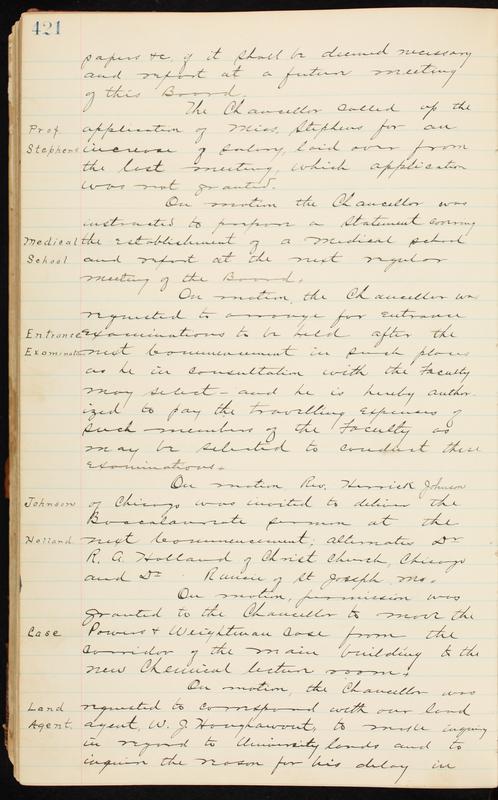 421
papers &c, if it shall be deemed necessary
and report at a future meeting
of this Board.
The Chancellor called up the
Prof application of Miss Stephens for an
Stephens increase of salary, laid over from
the last meeting, which application
was not granted.
On motion the Chancellor was
instructed to prepare a Statement covering
Medical the establishment of a medical school
School and report at the next regular
meeting of the Board.
On motion, the Chancellor was
requested to arrange for entrance
Entrance examinations to be held after the
Examinations next Commencement in such places
as he in consultation with the Faculty
may select - and he is hereby author
ized to pay the travelling expenses of
such members of the Faculty as
may be selected to conduct these
examinations.
On motion Rev. Herrick Johnson
Johnson of Chicago was invited to deliver the
Baccalaureate sermon at the
Holland next Commencement; alternates Dr
R. A. Holland of Christ Church, Chicago
and Dr of St Joseph Mo.
On motion, permission was
granted to the Chancellor to move the
Case Powers & Weightman Case from the
corridor of the main building to the
new Chemical lecture room.
On motion, the Chancellor was
Land requested to correspond with our land
Agent. agent, W. J. Houghawout, to make inquiry
in regard to University lands and to
inquire the reason for his delay in